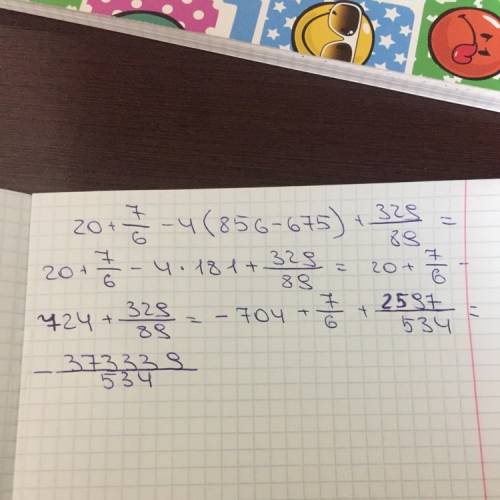 20 + 7/6 - 4(856 - 675) + 329/89 =
20 + 7/6 - 4 · 181 + 329/89 = 20 + 7/6 -
724 + 329/89 = - 704 + 7/6 + 2597/534 =
- 373339/534